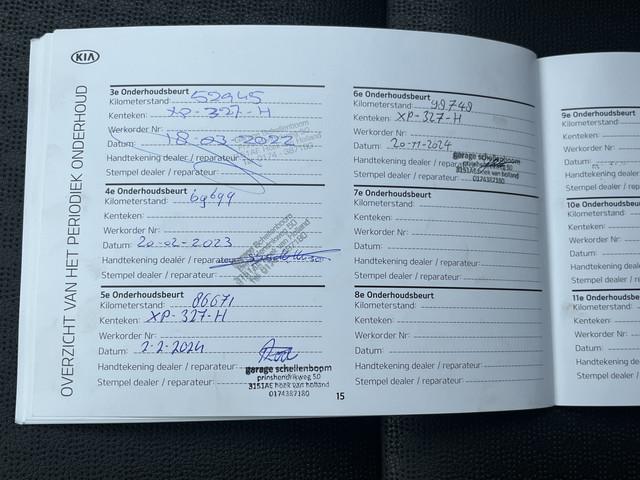 KIA
OVERZICHT VAN HET PERIODIEK ONDERHOUD
3e Onderhoudsbeurt
Kilometerstand: 52945
Kenteken: XP-327-H
Werkorder Nr:
Datum: 18-03-2022
Handtekening dealer / reparateur:
Stempel dealer / reparateur:
4e Onderhoudsbeurt
Kilometerstand: 69699
Kenteken:
Werkorder Nr:
Datum: 20-02-2023
Handtekening dealer / reparateur:
Stempel dealer / reparateur:
5e Onderhoudsbeurt
Kilometerstand: 86671
Kenteken: XP-327-H
Werkorder Nr:
Datum: 2-2-2024
Handtekening dealer / reparateur:
Stempel dealer / reparateur:
garage schellenboom
prinshendrikweg 50
3151AE hoek van holland
0174387180
15
6e Onderhoudsbeurt
Kilometerstand: 99749
Kenteken: XP-327-H
Werkorder Nr:
Datum: 20-11-2024
Handtekening dealer / reparateur:
Stempel dealer / reparateur:
garage schellenboom
3151AE hoek van holland
0174387180
7e Onderhoudsbeurt
Kilometerstand:
Kenteken:
Werkorder Nr:
Datum:
Handtekening dealer / reparateur:
Stempel dealer / reparateur:
8e Onderhoudsbeurt
Kilometerstand:
Kenteken:
Werkorder Nr:
Datum:
Handtekening dealer / reparateur:
Stempel dealer / reparateur:
9e Onderhoudsbeurt
Kilometerstand:
Kenteken:
Werkorder Nr:
Datum:
Handtekening dealer
Stempel dealer /
10e Onderhoudsbeurt
Kilometerstand:
Kenteken:
Werkorder Nr:
Datum:
Handtekening
Stempel dealer /
11e Onderhoudsbeurt
Kilometerstand:
Kenteken:
Werkorder Nr:
Datum:
Handtekening dealer
Stempel dealer /